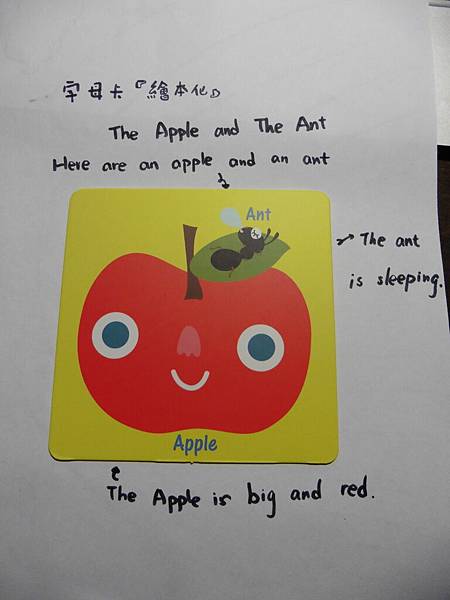 字母卡「繪本化」
The Apple and The Ant
Here are an apple and an ant
Ant
The ant
is sleeping.
Apple
The Apple is big and red.